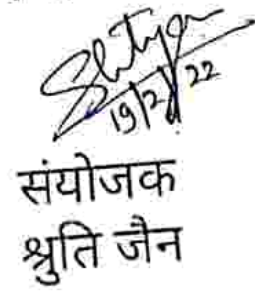 19/2/22
संयोजक
श्रुति जैन